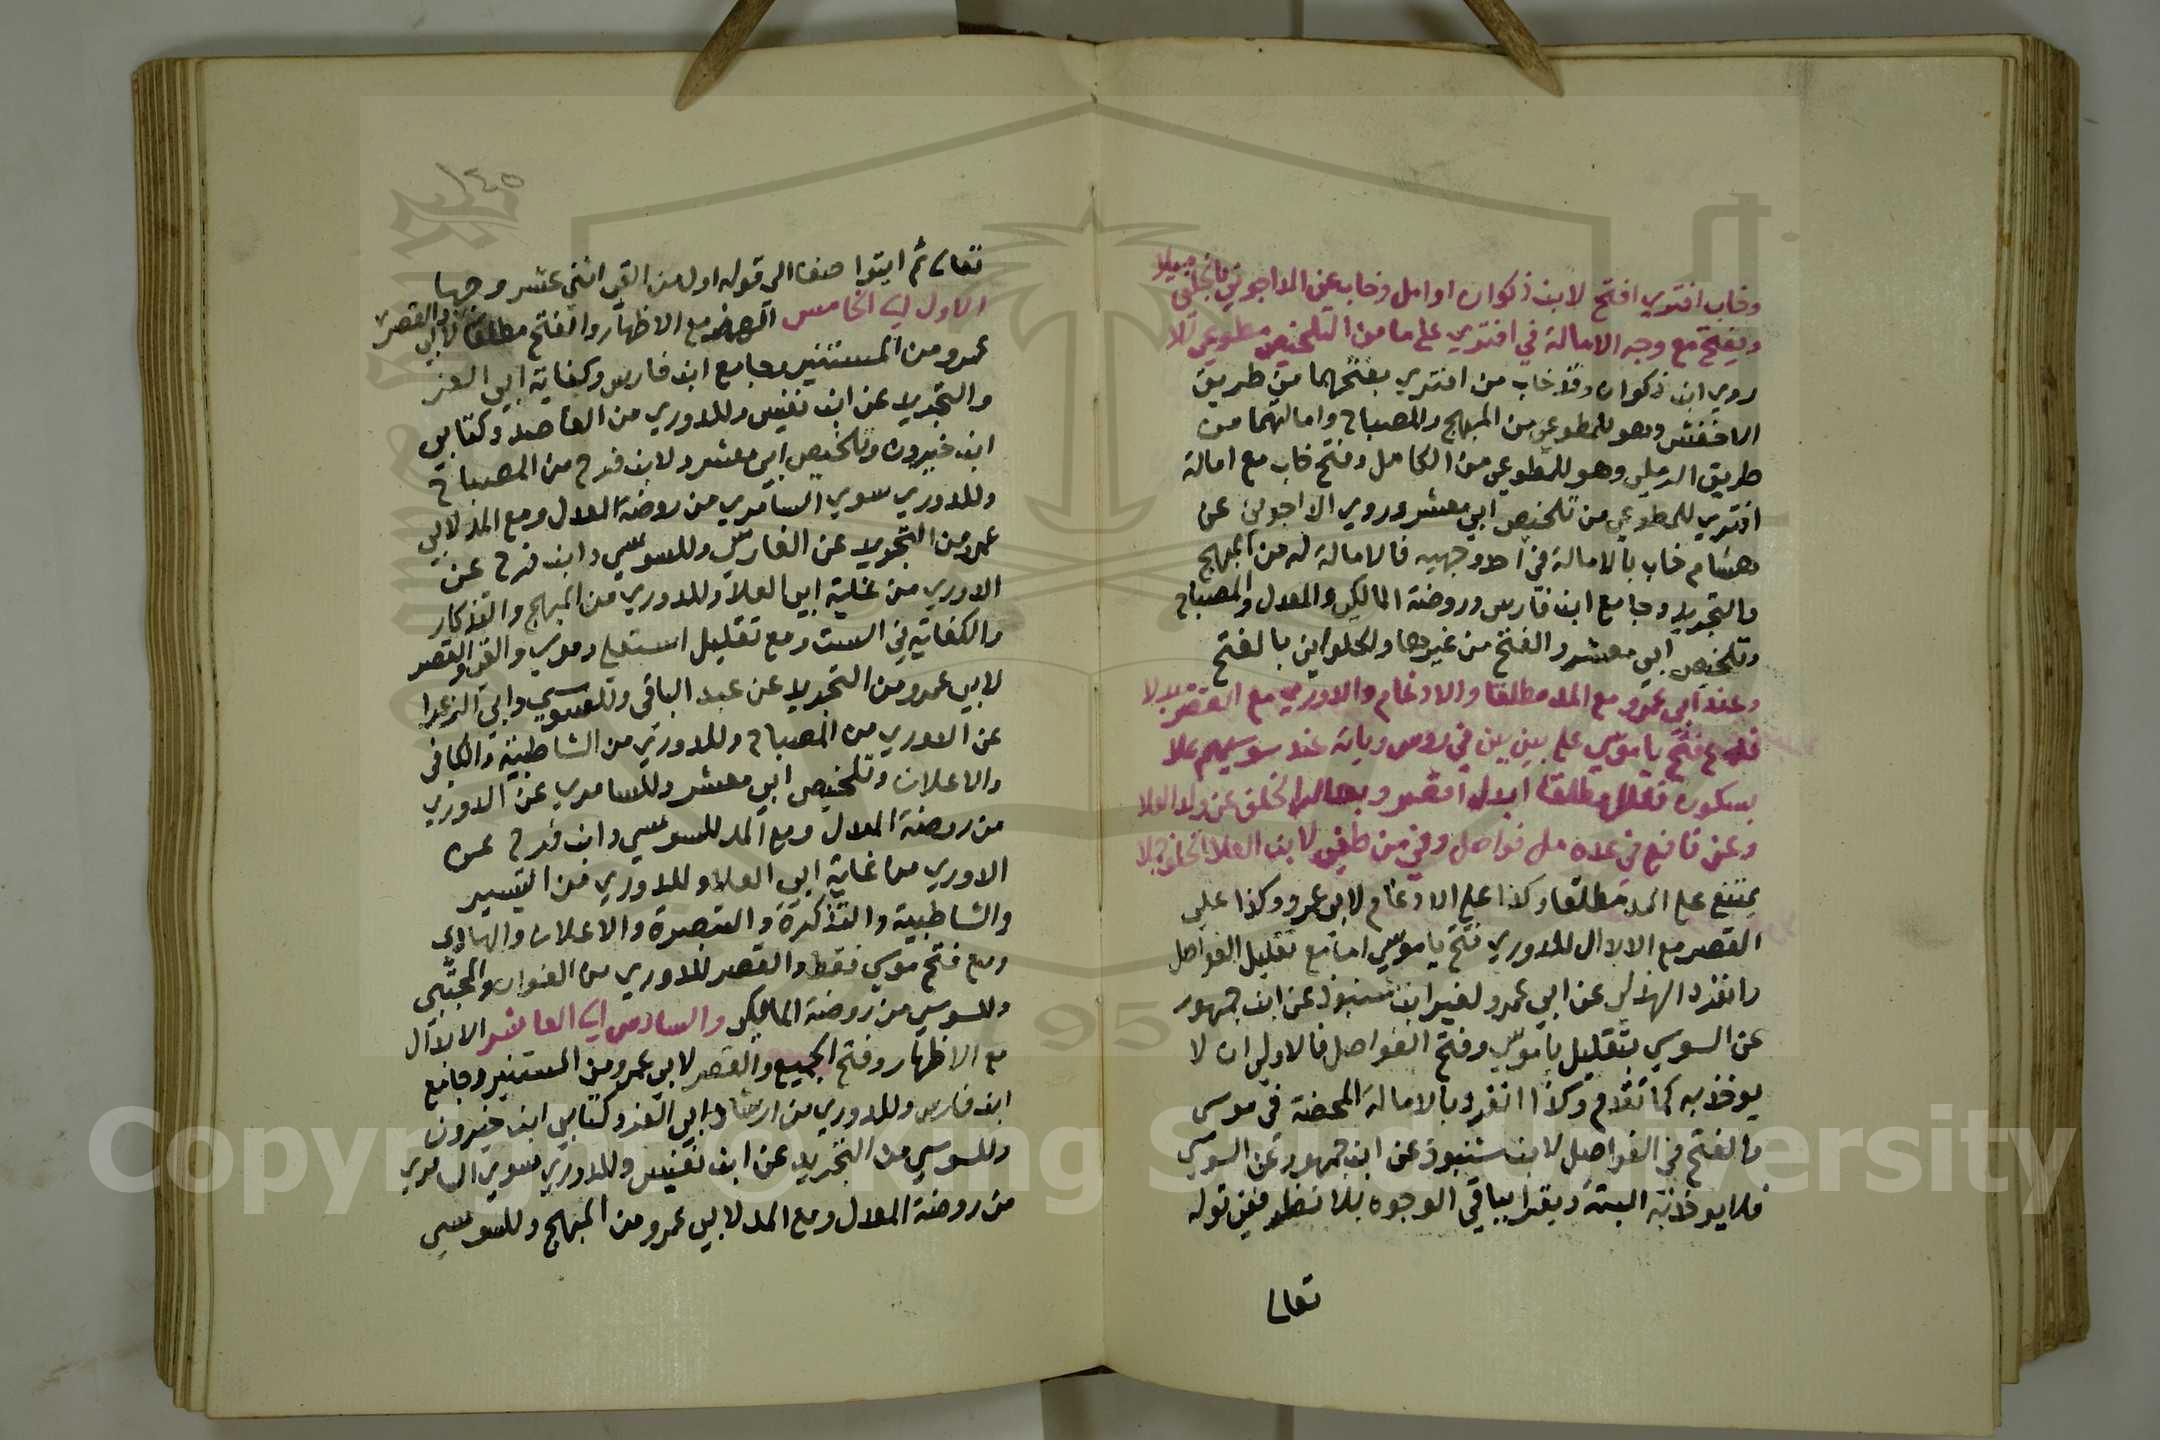 وخاب افتري افتح لابن ذكوان او امل وخاب عن الداجوني بالخلف ميلا
ويفتح مع وجه الامالة في افتري علي ما من التلخيص مطوعي تلا
روي ابن ذكوان وقد خاب من افتري بفتحهما من طريق
الاخفش وهو للمطوعي من المبهج والمصباح وامالتهما من
طريق الرملي وهو للمطوعي من الكامل وفتح خاب مع امالة
افتري للمطوعي من تلخيص ابي معشر وروي الداجوني عن
هشام خاب بالامالة في احد وجهيه فالامالة له من المبهج
والتجريد وجامع ابن فارس وروضة المالكي والمعدل والمصباح
وتلخيص ابي معشر والفتح من غيرها ولحلواني بالفتح
وعند ابي عمرو مع المد مطلقا والادغام والدوري مع القصر
فدع فتح يا موسي علي بين بين في روس ويأته عند سوسيهم علا
بسكون فقلل مطلقا ابدل اقصر
وعن نافع في عده مل فواصل وفي من طغي لابن العلا الخلف جلا
يمتنع علي المد مطلقا وكذا علي الادغام لابي عمرو وكذا علي
القصر مع الابدال للدوري فتح يا موسي امامع تقليل الفواصل
وانفرد الهذلي عن ابي عمرو لغير ابن شنبوذ عن ابن جمهور
عن السوسي بتقليل يا موسي وفتح الفواصل فالاولي ان لا
يوخذ به كما تقدم وكذا انفرد بالامالة المحضة في موسي
والفتح في الفواصل لابن شنبوذ عن ابن جمهور عن السوسي
فلا يوخذ به البتة ويقرا بباقي الوجوه بلا نظر ففي قوله
تعالي
تعالي ثم ايتوا صفا الي قوله اول من القي اثني عشر وجها
الاول الي الخامس الهمز مع الاظهار والفتح مطلقا والقصر لابي
عمرو من المستنير وجامع ابن فارس وكفاية ابي العز
والتجريد عن ابن نفيس وللدوري من القاصد وكتابي
ابن خيرون وتلخيص ابي معشر ولابن فرح من المصباح
وللدوري سوي السامري من روضة المعدل ومع المد لابي
عمرو من التجريد عن الفارسي وللسوسي وابن فرح عن
الدوري من غاية ابي العلا وللدوري من المبهج والتذكار
والكفاية في الست ومع تقليل استعلي وموسي والقي والقصر
لابي عمرو من التجريد عن عبد الباقي وللسوسي وابي الزعرا
عن الدوري من المصباح وللدوري من الشاطبية والكافي
والاعلان وتلخيص ابي معشر وللسامري عن الدوري
من روضة المعدل ومع المد للسوسي وابن فرح عن
الدوري من غاية ابي العلا وللدوري من التيسير
والشاطبية والتذكرة والتبصرة والاعلان والهادي
ومع فتح موسي فقط والقصر للدوري من العنوان والمجتبي
وللسوسي من روضة المالكي والسادس الي العاشر الابدال
مع الاظهار وفتح الجميع والقصر لابي عمرو من المستنير وجامع
ابن فارس وللدوري من ارشاد ابي العز وكتابي ابن خيرون
وللسوسي من التجريد عن ابن نفيس وللدوري سوي السامري
من روضة المعدل ومع المد لابي عمرو من المبهج وللسوسي
Copyright © King Saud University